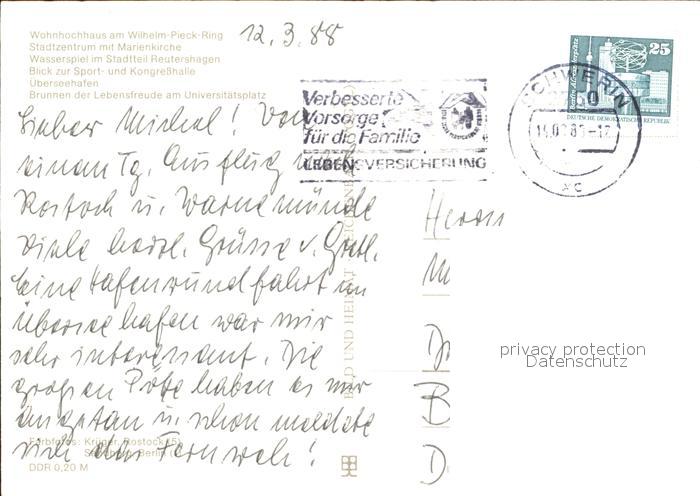 Wohnhochhaus am Wilhelm-Pieck-Ring
Stadtzentrum mit Marienkirche
Wasserspiel im Stadtteil Reutershagen
Blick zur Sport- und Kongreßhalle
Überseehafen
Brunnen der Lebensfreude am Universitätsplatz
12.3.88
Lieber Michael! Von
einem Tg. Ausflug nach
Rostock u. Warnemünde
viele herzl. Grüsse v. Gretl.
Eine Hafenrundfahrt im
Überseehafen war mir
sehr interessant. Die
großen Pötte haben es mir
angetan u. schon meldete
sich das Fernweh!
Farbfotos: Krüger, Rostock (5)
Berlin
DDR 0,20 M
BILD UND HEIMAT REICHENBACH
Verbesserte
Vorsorge
für die Familie
LEBENSVERSICHERUNG
SCHWERIN
25
DEUTSCHE DEMOKRATISCHE REPUBLIK
Herrn
M
B
D
privacy protection
Datenschutz